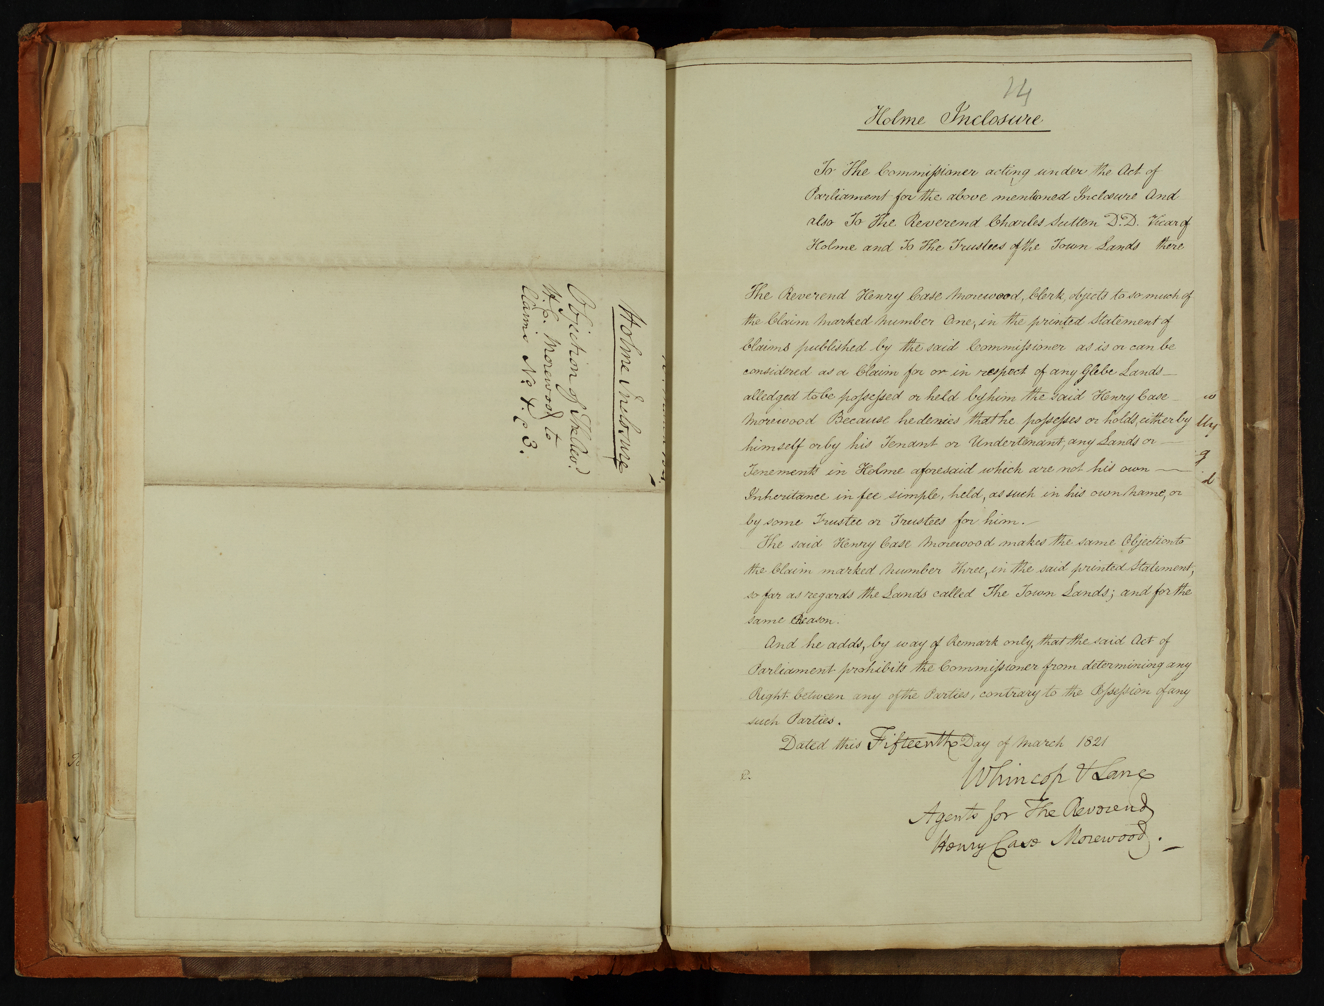 Holme Inclosure
Objection of
H. C. Morewood to
Claims No. 1 & 3.
14
Holme Inclosure
To The Commissioner acting under the Act of
Parliament for the above mentioned Inclosure And
also To The Reverend Charles Sutton D.D. Vicar of
Holme and To The Trustees of the Town Lands there
The Reverend Henry Case Morewood, Clerk, objects to so much of
the Claim marked Number One, in the printed Statement of
Claims published by the said Commissioner as is or can be
considered as a Claim for or in respect of any Glebe Lands
alledged to be possessed or held by him the said Henry Case
Morewood Because he denies that he possesses or holds, either by
himself or by his Tenant or Undertenant, any Lands or
Tenements in Holme aforesaid which are not his own
Inheritance in fee simple, held, as such in his own Name, or
by some Trustee or Trustees for him.
The said Henry Case Morewood makes the same Objection to
the Claim marked Number Three, in the said printed Statement,
so far as regards the Lands called The Town Lands; and for the
same Reason.
And he adds, by way of Remark only, that the said Act of
Parliament prohibits the Commissioner from determining any
Right between any of the Parties, contrary to the Possession of any
such Parties.
Dated this Fifteenth Day of March 1821
Whincop & Lane
Agents for The Reverend
Henry Case Morewood.